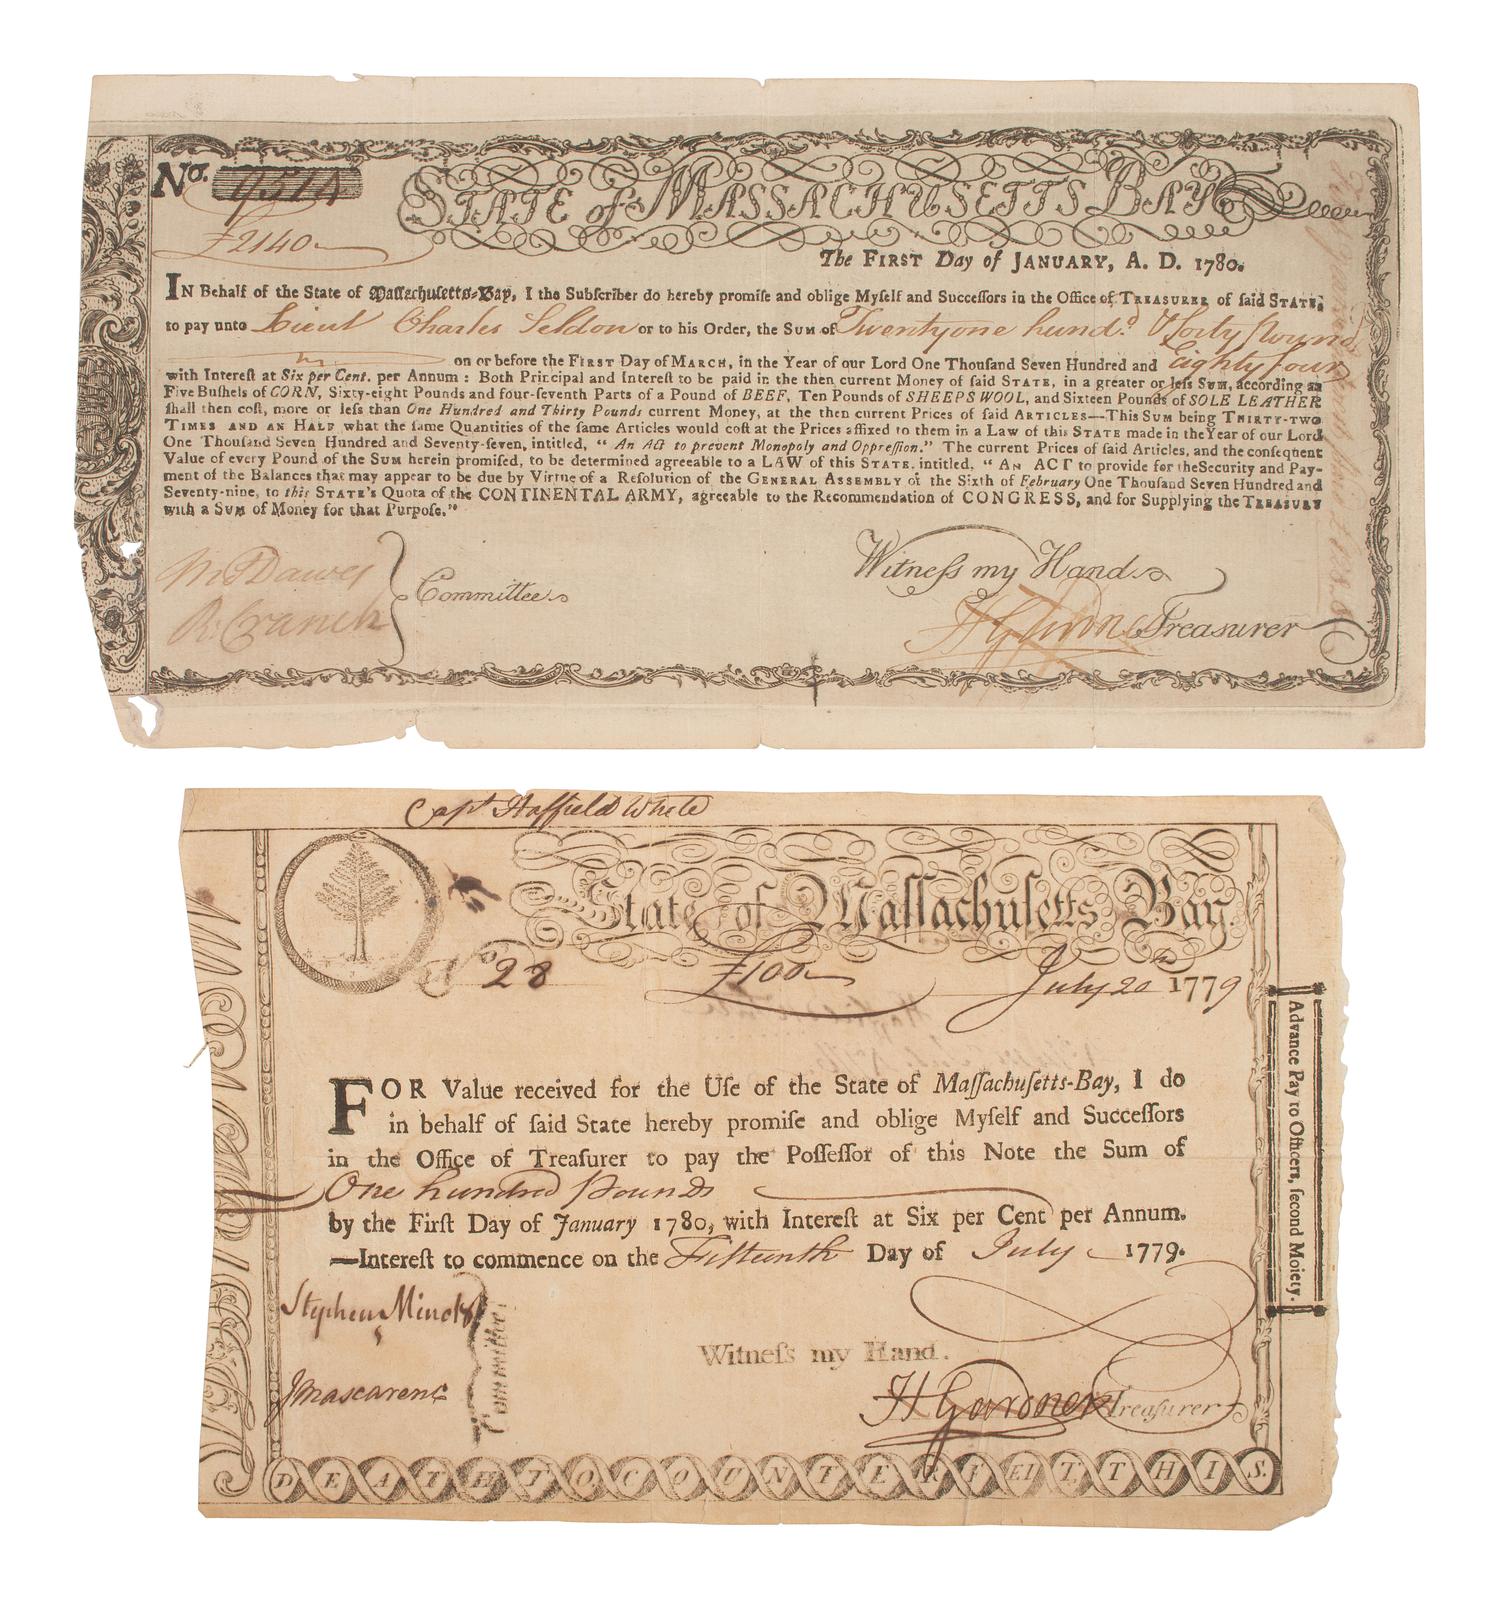 No. 9514
£2140
STATE of MASSACHUSETTS BAY
The FIRST Day of JANUARY, A. D. 1780.
IN Behalf of the State of Maſſachuſetts-Bay, I the Subſcriber do hereby promiſe and oblige Myſelf and Succeſſors in the Office of TREASURER of ſaid STATE,
to pay unto Lieut Charles Seldon or to his Order, the SUM of Twentyone hund.d & forty Pound
on or before the FIRST Day of MARCH, in the Year of our Lord One Thouſand Seven Hundred and Eighty four
with Intereſt at Six per Cent. per Annum: Both Principal and Intereſt to be paid in the then current Money of ſaid STATE, in a greater or leſs SUM, according as
Five Buſhels of CORN, Sixty-eight Pounds and four-ſeventh Parts of a Pound of BEEF, Ten Pounds of SHEEPS WOOL, and Sixteen Pounds of SOLE LEATHER
ſhall then coſt, more or leſs than One Hundred and Thirty Pounds current Money, at the then current Prices of ſaid ARTICLES—This SUM being THIRTY-TWO
TIMES AND AN HALF what the ſame Quantities of the ſame Articles would coſt at the Prices affixed to them in a Law of this STATE made in the Year of our Lord
One Thouſand Seven Hundred and Seventy-ſeven, intitled, "An Act to prevent Monopoly and Oppreſſion." The current Prices of ſaid Articles, and the conſequent
Value of every Pound of the SUM herein promiſed, to be determined agreeable to a LAW of this STATE, intitled, "AN ACT to provide for the Security and Pay-
ment of the Balances that may appear to be due by Virtue of a Reſolution of the GENERAL ASSEMBLY of the Sixth of February One Thouſand Seven Hundred and
Seventy-nine, to this STATE'S Quota of the CONTINENTAL ARMY, agreeable to the Recommendation of CONGRESS, and for Supplying the TREASURY
with a SUM of Money for that Purpoſe."
Witneſs my Hand
T Dawes
R. Cranch
Committee
H Gardner Treasurer
Capt Haffield White
State of Maſſachuſetts Bay.
No 28 £100 July 20th 1779
FOR Value received for the Uſe of the State of Maſſachuſetts-Bay, I do
in behalf of ſaid State hereby promiſe and oblige Myſelf and Succeſſors
in the Office of Treaſurer to pay the Poſſeſſor of this Note the Sum of
One hundred Pounds
by the Firſt Day of January 1780, with Intereſt at Six per Cent per Annum.
—Intereſt to commence on the Fifteenth Day of July 1779.
Stephen Minot
J Mascarene
Committee.
Witneſs my Hand.
H Gardner Treaſurer
DEATH TO COUNTERFEIT THIS.
Advance Pay to Officers, ſecond Moiety.